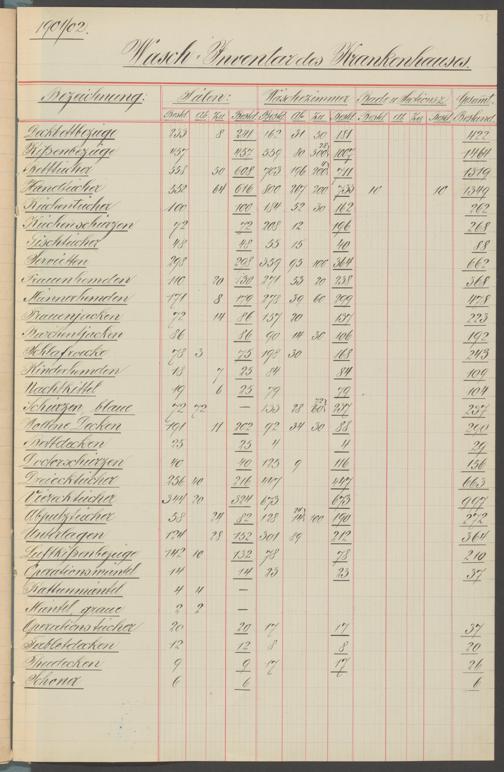 1901/02.
Wasch-Inventar des Krankenhauses.
Bezeichnung: Sälen: Wäschezimmer Gesamt-
Bestd Ab. Zu Bestd Bestd Ab Zu Bestd Bestd Ab Zu Bestd Bestand
Deckbettbezüge 233 8 241 162 31 50 181 422
Kißenbezüge 457 457 1464
Betttücher 558 50 608 711 1319
Handtücher 552 64 616 800 267 200 733 10 10 1349
Küchentücher 100 100 184 52 30 162 262
Küchenschürzen 72 72 208 12 196 268
Tischtücher 48 48 55 15 40 88
Servietten 298 298 359 95 100 364 662
Frauenhemden 110 20 130 271 53 20 238 368
Männerhemden 171 8 179 278 39 60 299 478
Frauenjacken 72 14 86 157 20 137 223
Barchentjacken 86 86 90 14 30 106 192
Schlafröcke 78 3 75 198 30 168 243
Kinderhemden 18 7 25 84 84 109
Nachtkittel 19 6 25 79 79 104
Schürzen blaue 72 72 — 28 237 237
Wollene Decken 191 11 202 92 34 30 88 290
Bettdecken 25 25 4 4 29
Doctorschürzen 40 40 125 9 116 156
Dreiecktücher 256 40 216 447 447 663
Vierecktücher 344 20 324 673 673 997
Abputztücher 58 24 82 128 100 190 272
Unterlagen 124 28 152 301 89 212 364
Luftkißenbezüge 142 10 132 78 78 210
Operationsmäntel 14 14 23 23 37
Kattunmäntel 4 4 —
Mäntel, graue 2 2 —
Operationstücher 20 20 17 17 37
Tablettdecken 12 12 8 8 20
9 9 17 17 26
6 6 6